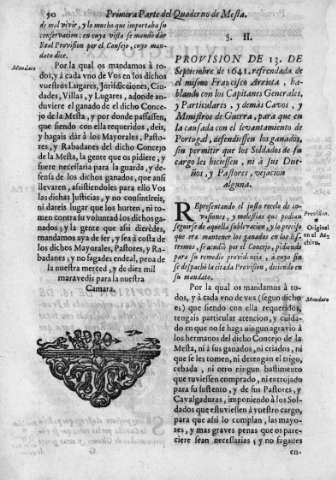 50 Primera Parte del Quaderno de Mesta.
de mal vivir, y lo mucho que importaba su
conservacion: en cuya vista se mandò dàr
Real Provision por el Consejo, cuyo man-
dato dice.
Mandato
Por la qual os mandamos à to-
dos, y à cada vno de Vos en los dichos
vuestros Lugares, Jurisdicciones, Ciu-
dades, Villas, y Lugares, adonde an-
duviere el ganado de el dicho Conce-
jo de la Mesta, y por donde passassen,
que siendo con ella requeridos, deis,
y hagais dàr à los Mayorales, Pasto-
res, y Rabadanes del dicho Concejo
de la Mesta, la gente que os pidiere, y
fuere necessaria para la guarda, y de-
fensa de los dichos ganados, que ansi
llevaren, assistiendoles para ello Vos
las dichas Justicias, y no consintireis,
ni dareis lugar que los hurten, ni to-
men contra su voluntad los dichos ga-
nados; y la gente que assi dieredes,
mandamos aya de ser, y sea à costa de
los dichos Mayorales, Pastores, y Ra-
badanes, y no fagades endeal, pena de
la nuestra merced, y de diez mil
maravedis para la nuestra
Camara.
§. II.
PROVISION DE 13. DE
Septiembre de 1641. refrendada de
el mismo Francisco Arrieta, ha-
blando con los Capitanes Generales,
y Particulares, y demàs Cavos, y
Ministros de Guerra, para que en
la causada con el levantamiento de
Portogal, defendiessen los ganados,
sin permitir que los Soldados de su
cargo les hiciessen, ni à sus Due-
ños, y Pastores, vejacion
alguna.
REpresentando el justo recelo de in-
vasiones, y molestias que podian
seguirse de aquella sublevacion, y lo preciso
que era mantener los ganados en los Es-
tremos, se acudiò por el Concejo, pidiendo
para su remedio providencia, à cuyo fin
se despachò la citada Provision, diciendo en
su mandato.
Provision.
Original
en el Ar-
chivo.
Por la qual os mandamos à to-
dos, y à cada vno de vos (segun dicho
es) que siendo con ella requeridos,
tengais particular atencion, y cuida-
do en que no se haga ningun agravio à
los hermanos del dicho Concejo de la
Mesta, ni à sus ganados, ni criados, ni
que se les tomen, ni detengan el trigo,
cebada, ni otro ningun bastimento
que tuviessen comprado, ni enterojado
para su sustento, y de sus Pastores, y
Cavalgaduras, imponiendo à los Sol-
dados que estuviessen à vuestro cargo,
para que assi lo cumplan, las mayo-
res, y mas graves penas que os pare-
ciere sean necessarias; y no fagades
Mandato
en-